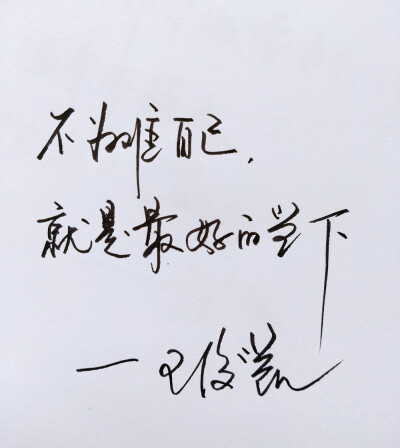 不为难自己，
就是最好的当下
—王俊凯